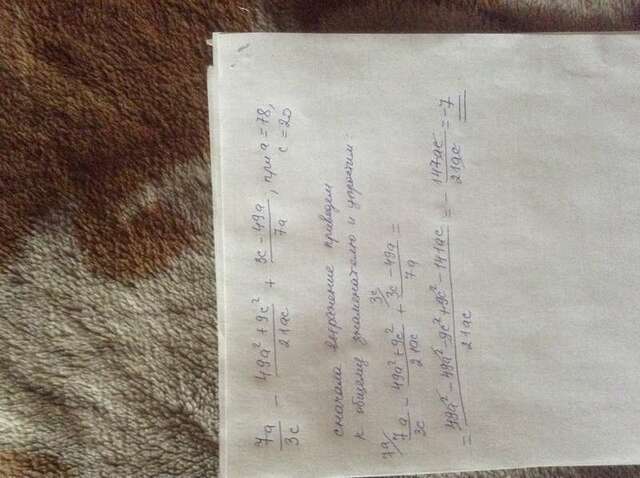 7a/3c - (49a² + 9c²)/21ac + (3c - 49a)/7a, при a = 78,
c = 20
сначала выражение приводем
к общему знаменателю и упростим:
7a/ 7a/3c - (49a² + 9c²)/21ac + 3c/ (3c - 49a)/7a =
= (49a² - 49a² - 9c² + 9c² - 147ac)/21ac = - 147ac/21ac = -7